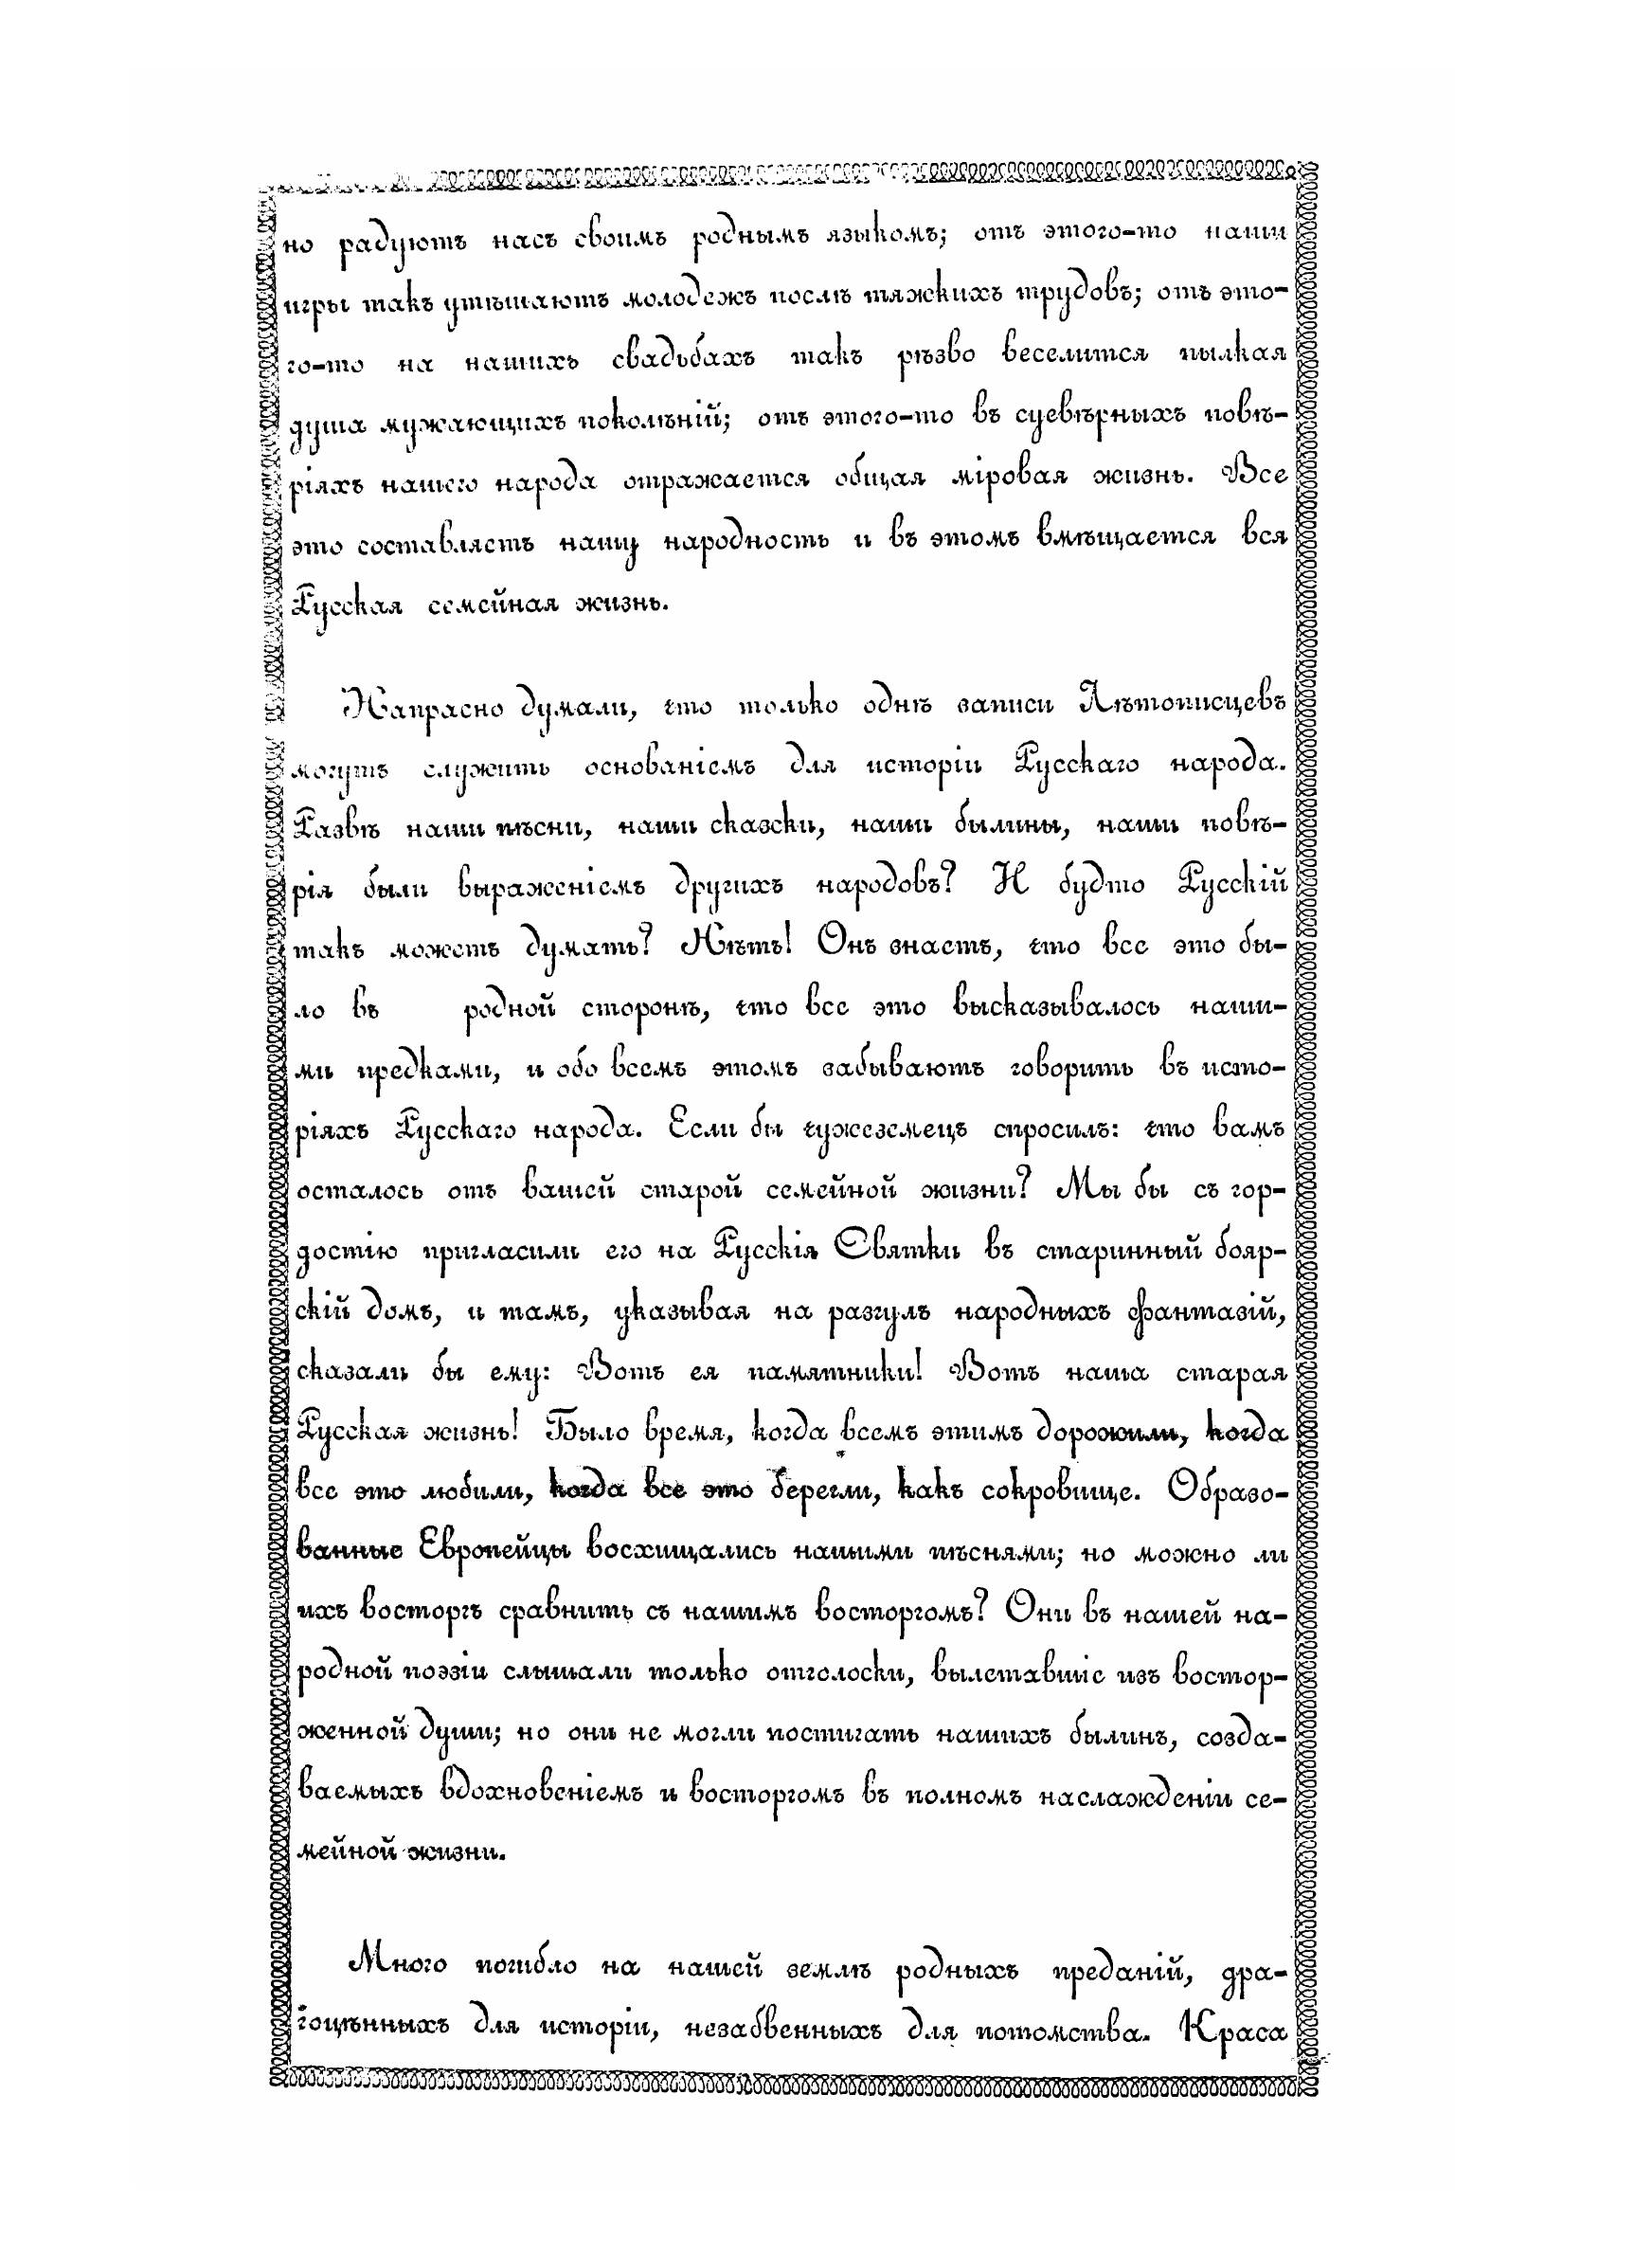 но радуютъ насъ своимъ роднымъ языкомъ; отъ этого-то наши
игры такъ утѣшаютъ молодежъ послѣ тяжкихъ трудовъ; отъ это-
го-то на нашихъ свадьбахъ такъ рѣзво веселится пылкая
душа мужающихъ поколѣній; отъ этого-то въ суевѣрныхъ повѣ-
ріяхъ нашего народа отражается общая міровая жизнь. Все
это составляетъ нашу народность и въ этомъ вмѣщается вся
Русская семейная жизнь.
Напрасно думали, что только однѣ записи Лѣтописцевъ
могутъ служить основаніемъ для исторіи Русскаго народа.
Развѣ наши пѣсни, наши сказски, наши былины, наши повѣ-
рія были выраженіемъ другихъ народовъ? И будто Русскій
такъ можетъ думать? Нѣтъ! Онъ знаетъ, что все это бы-
ло въ родной сторонѣ, что все это высказывалось наши-
ми предками, и обо всемъ этомъ забываютъ говорить въ исто-
ріяхъ Русскаго народа. Если бы чужеземецъ спросилъ: что вамъ
осталось отъ вашей старой семейной жизни? Мы бы съ гор-
достію пригласили его на Русскія Святки въ старинный бояр-
скій домъ, и тамъ, указывая на разгулъ народныхъ фантазій,
сказали бы ему: Вотъ ея памятники! Вотъ наша старая
Русская жизнь! Было время, когда всемъ этимъ дорожили, когда
все это любили, когда все это берегли, какъ сокровище. Образо-
ванные Европейцы восхищались нашими пѣснями; но можно ли
ихъ восторгъ сравнить съ нашимъ восторгомъ? Они въ нашей на-
родной поэзіи слышали только отголоски, вылетавшіе изъ востор-
женной души; но они не могли постигать нашихъ былинъ, созда-
ваемыхъ вдохновеніемъ и восторгомъ въ полномъ наслажденіи се-
мейной жизни.
Много погибло на нашей землѣ родныхъ преданій, дра-
гоцѣнныхъ для исторіи, незабвенныхъ для потомства. Краса